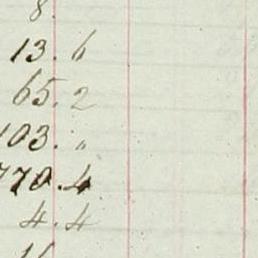 8.
13. 6
65. 2
103. "
770. 4
4. 4